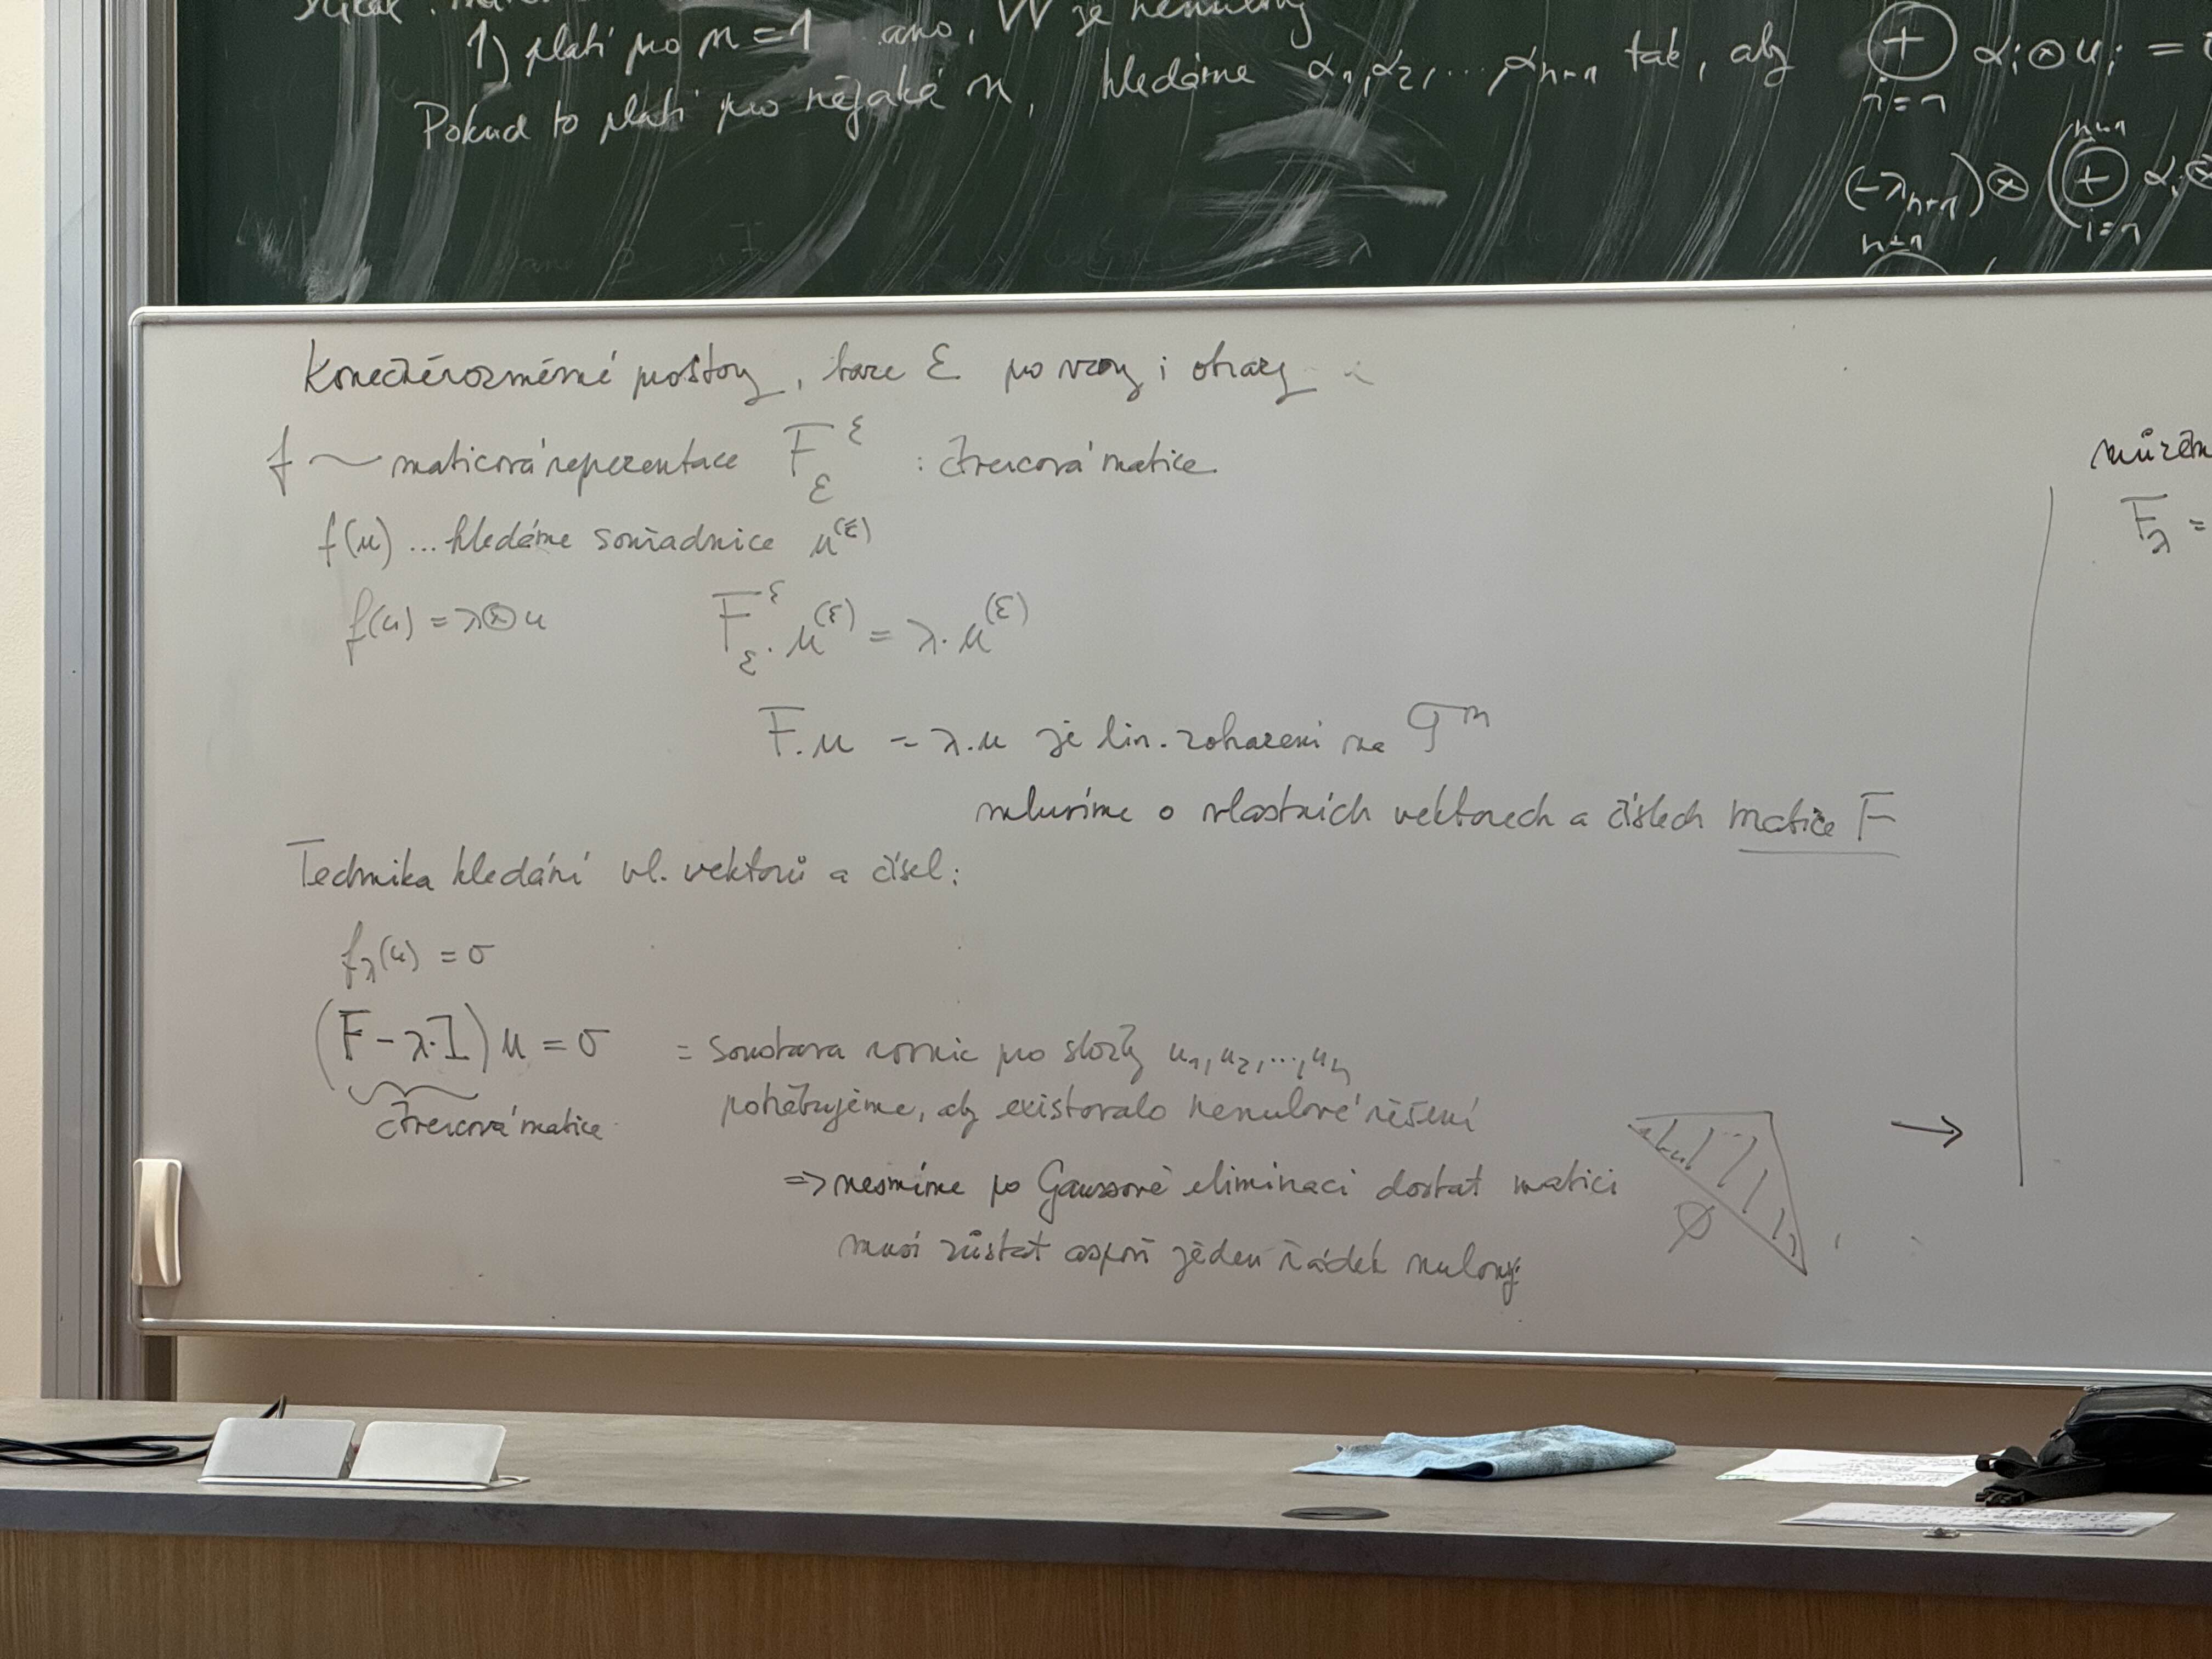 1) platí pro n = 1 ano, W je nenulový
Pokud to platí pro nějaké n, hledáme α₁, α₂, ..., αₙ₊₁ tak, aby ⊕ αᵢ ⊗ uᵢ =
i=1
n+1
(-λₙ₊₁) ⊗ ( ⊕ αᵢ ⊗
i=1
n+1
Konečněrozměrné prostory, báze ℰ pro vzory i obrazy
f ~ maticová reprezentace F_ℰ^ℰ : čtvercová matice
f(u) ... hledáme souřadnice u^(ℰ)
f(u) = λ ⊗ u F_ℰ^ℰ · u^(ℰ) = λ · u^(ℰ)
F.u = λ.u je lin. zobrazení na T^n
mluvíme o vlastních vektorech a číslech matice F
Technika hledání vl. vektorů a čísel:
f_λ(u) = σ
(F - λ·I) u = σ = soustava rovnic pro složky u₁, u₂, ..., uₙ
čtvercová matice
potřebujeme, aby existovalo nenulové řešení
⇒ nesmíme po Gaussově eliminaci dostat matici
∅
→
musí zůstat aspoň jeden řádek nulový
F_λ =